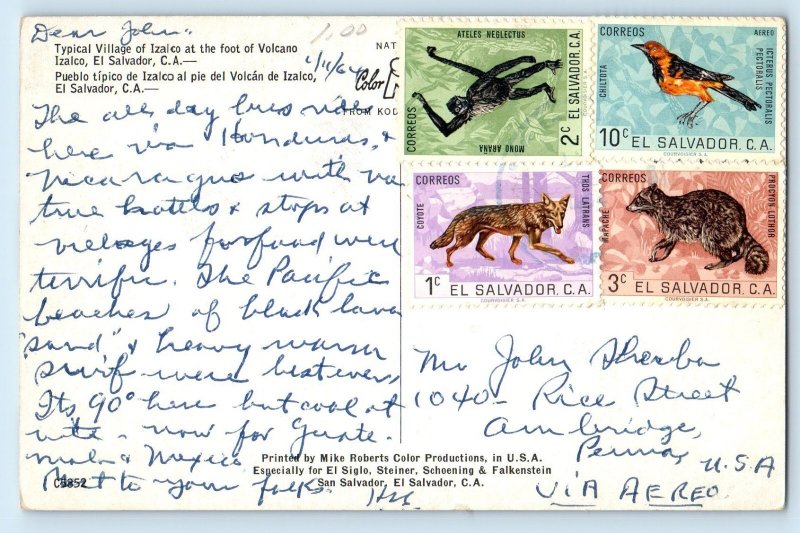 Dear John:-
1.00
Typical Village of Izalco at the foot of Volcano
Izalco, El Salvador, C.A.—
Pueblo típico de Izalco al pie del Volcán de Izalco,
El Salvador, C.A.—
NAT
Color
FROM KOD
The all day bus rides
here via Honduras, &
Nicaragua with
& stops at
villages for food were
terrific. The Pacific
beaches of black lava
"sand" & heavy warm
surf were best ever.
Its 90° here but cool at
nite - now for Guate-
mala & Mexico
Best to your folks.
C5852
CORREOS
ATELES NEGLECTUS
MONO ARAÑA
2c EL SALVADOR, C.A.
COURVOISIER S.A.
CORREOS
AEREO
CHILTOTA
ICTERUS PECTORALIS PECTORALIS
10c EL SALVADOR, C.A.
COURVOISIER S.A.
CORREOS
COYOTE
THOS LATRANS
1c EL SALVADOR, C.A.
COURVOISIER S.A.
CORREOS
MAPACHE
PROCYON LOTHOR
3c EL SALVADOR, C.A.
COURVOISIER S.A.
Mr John Sherba
1040- Rice Street
Ambridge,
Penna,
U.S.A
VIA AEREO
Printed by Mike Roberts Color Productions, in U.S.A.
Especially for El Siglo, Steiner, Schoening & Falkenstein
San Salvador, El Salvador, C.A.